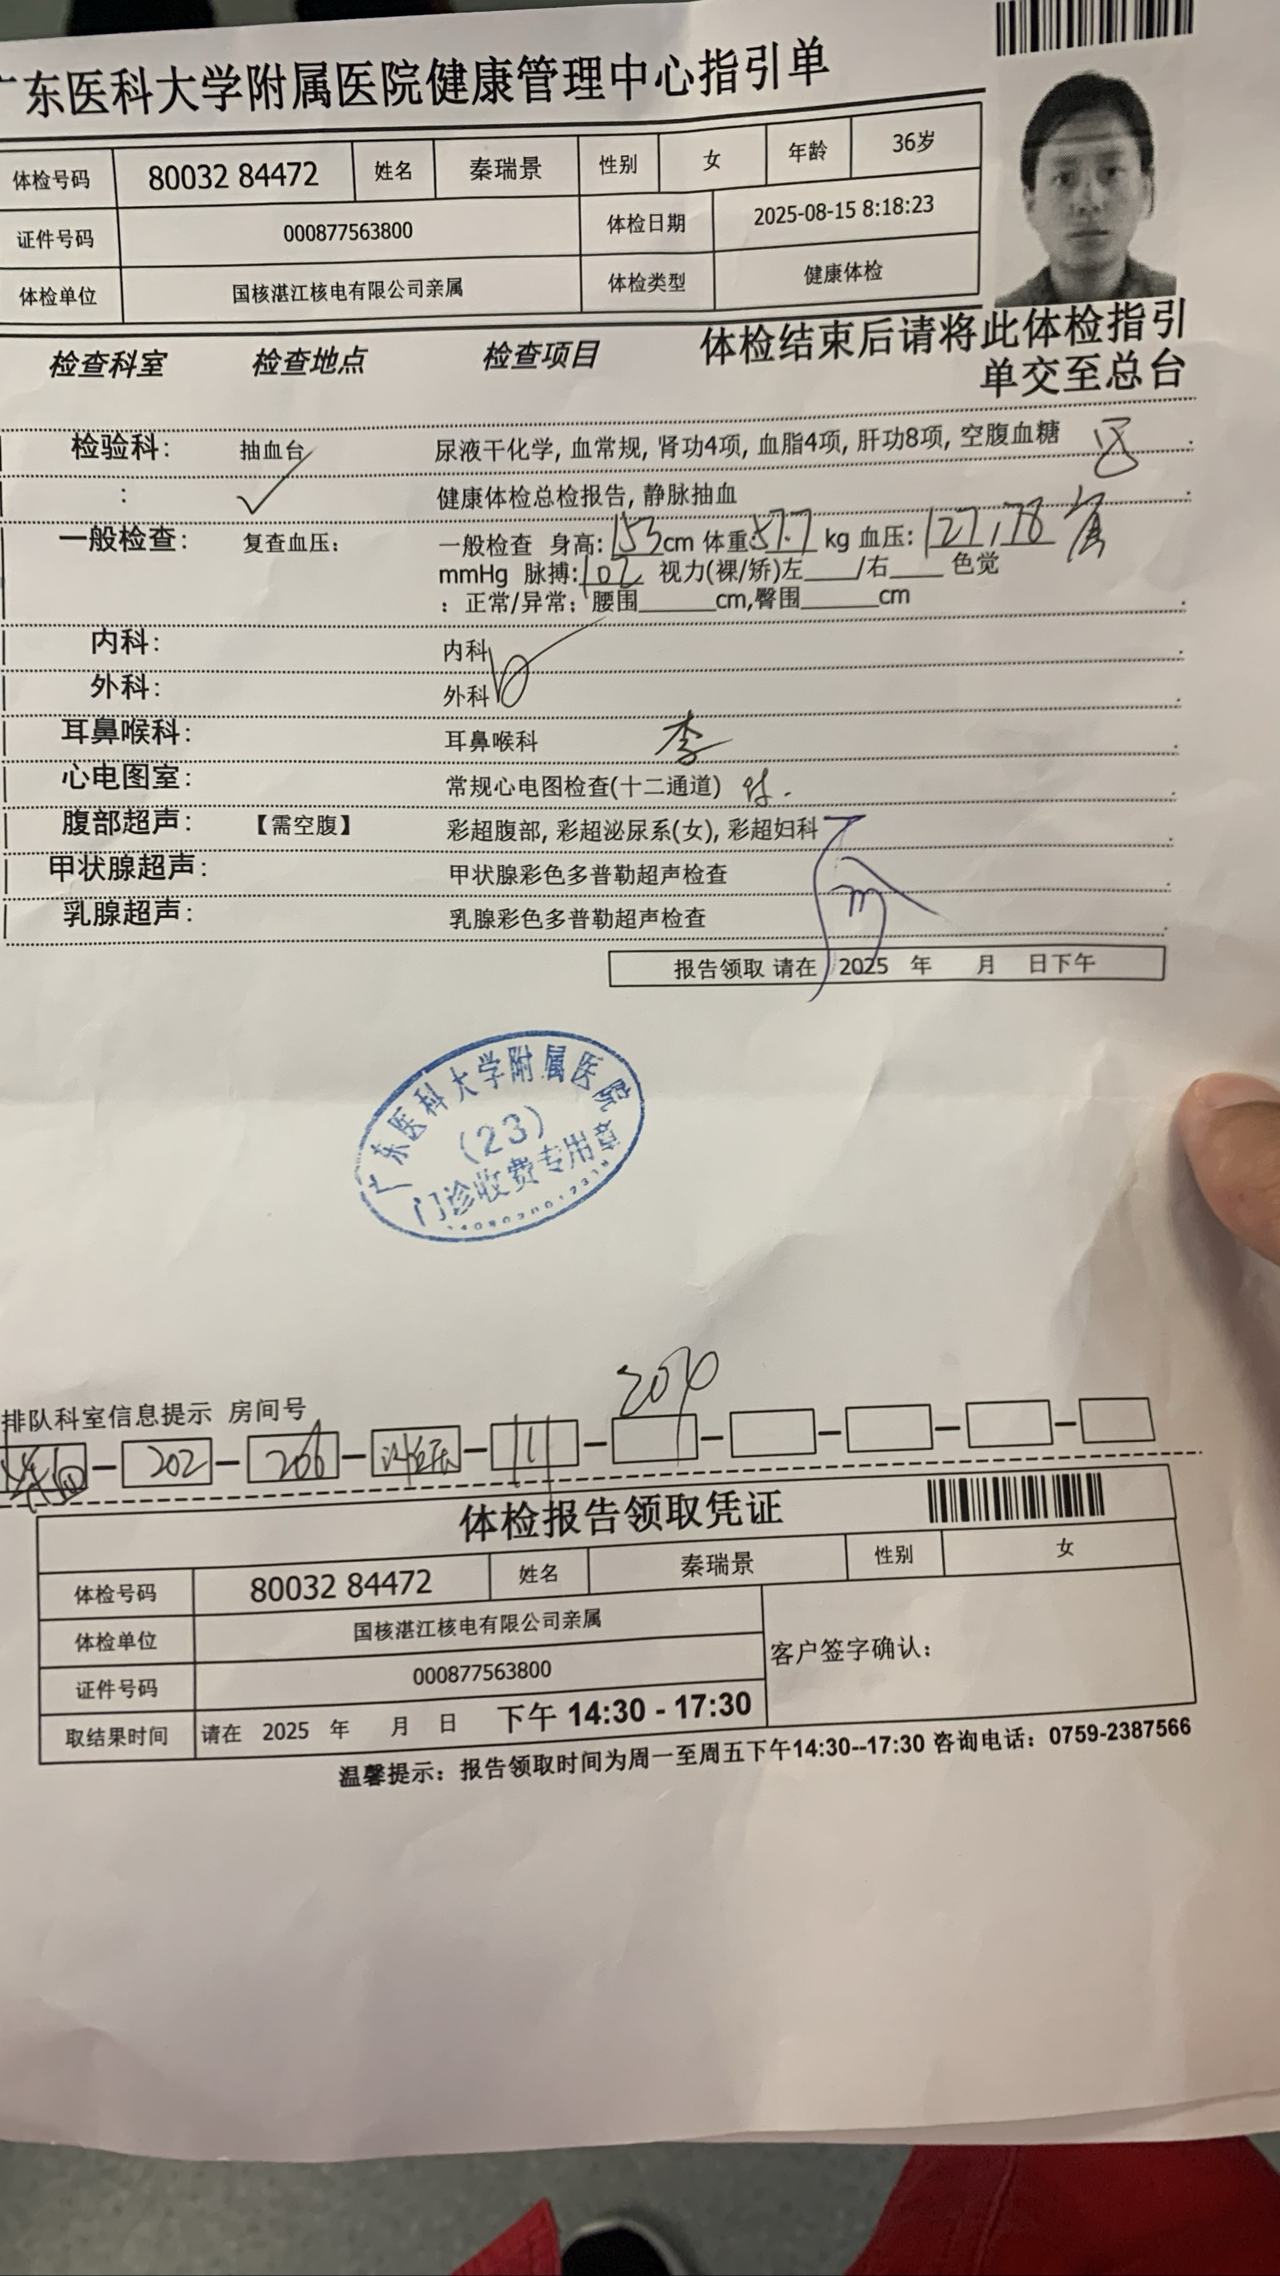 广东医科大学附属医院健康管理中心指引单
体检号码 80032 84472 姓名 秦瑞景 性别 女 年龄 36岁
证件号码 000877563800 体检日期 2025-08-15 8:18:23
体检单位 国核湛江核电有限公司亲属 体检类型 健康体检
检查科室 检查地点 检查项目 体检结束后请将此体检指引
单交至总台
检验科: 抽血台 尿液干化学, 血常规, 肾功4项, 血脂4项, 肝功8项, 空腹血糖
: 健康体检总检报告, 静脉抽血
一般检查: 复查血压: 一般检查 身高: 153 cm 体重: 57.7 kg 血压: 127, 78
mmHg 脉搏: 102 视力(裸/矫)左____/右____ 色觉
: 正常/异常; 腰围______cm,臀围______cm
内科: 内科
外科: 外科
耳鼻喉科: 耳鼻喉科 李
心电图室: 常规心电图检查(十二通道)
腹部超声: 【需空腹】 彩超腹部, 彩超泌尿系(女), 彩超妇科
甲状腺超声: 甲状腺彩色多普勒超声检查
乳腺超声: 乳腺彩色多普勒超声检查
报告领取 请在 2025 年 月 日下午
广东医科大学附属医院
(23)
门诊收费专用章
排队科室信息提示 房间号
202 206 111
体检报告领取凭证
体检号码 80032 84472 姓名 秦瑞景 性别 女
体检单位 国核湛江核电有限公司亲属
客户签字确认:
证件号码 000877563800
取结果时间 请在 2025 年 月 日 下午 14:30 - 17:30
温馨提示: 报告领取时间为周一至周五下午14:30--17:30 咨询电话: 0759-2387566